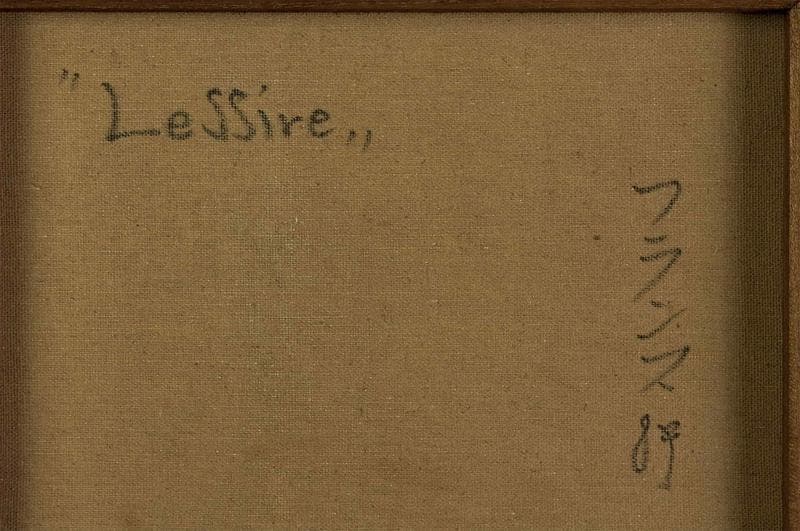 "Lessire„
フランス
89